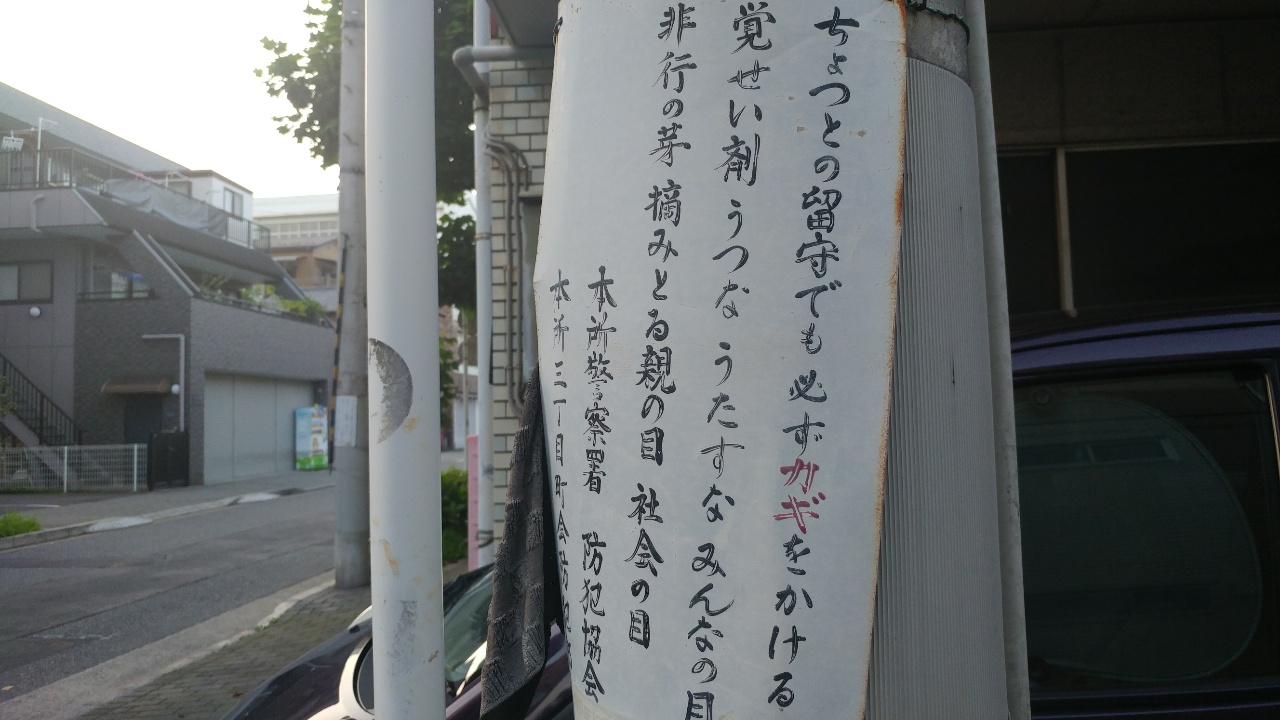 ちょつとの留守でも必ずカギをかける
覚せい剤 うつな うたすな みんなの目
非行の芽 摘みとる親の目 社会の目
本所警察署 防犯協会
本所三丁目町会防犯